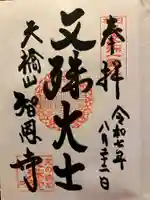 奉拝
令和七年
八月二十二日
文殊大士
天橋山
智恩寺